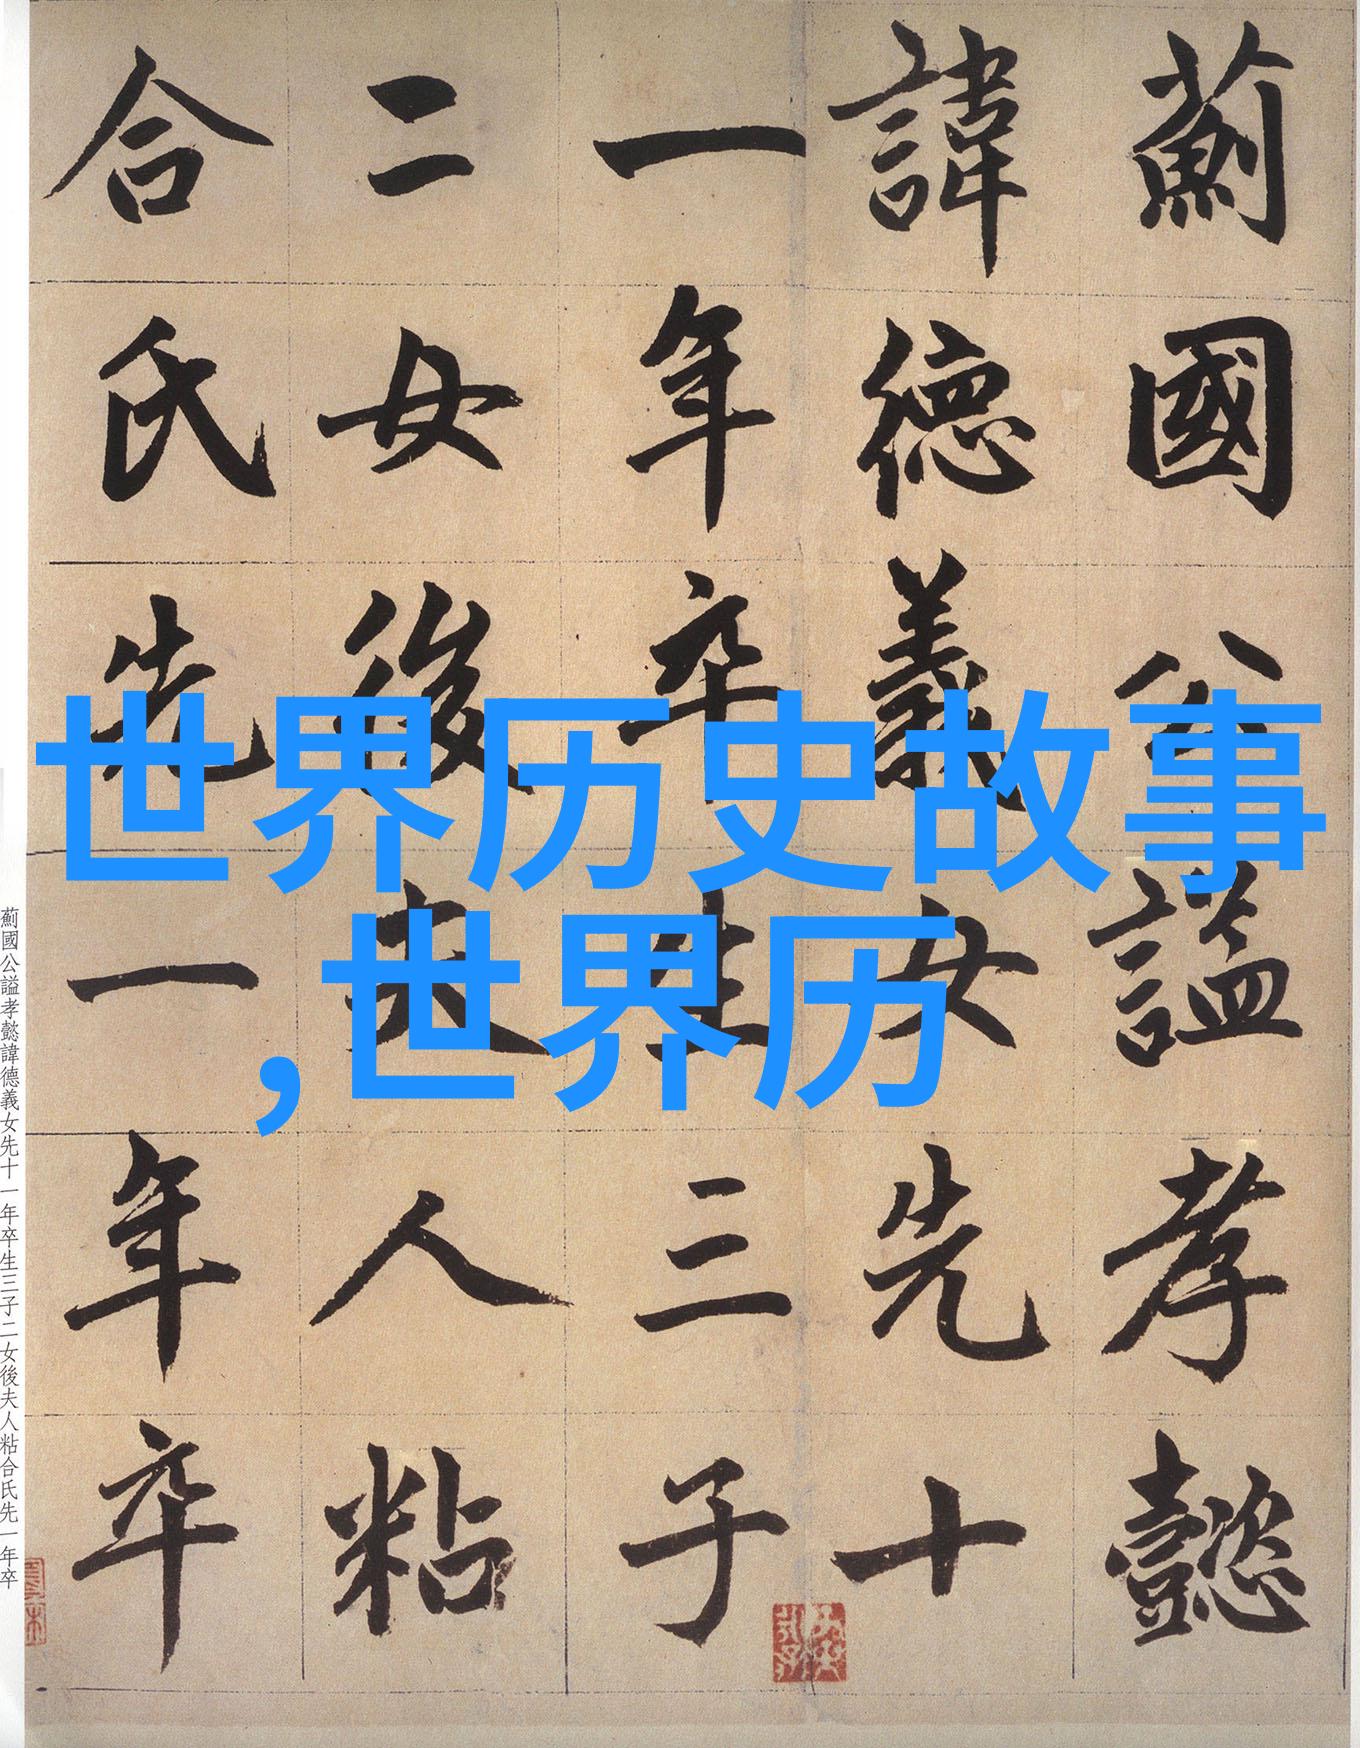 薊國公謚孝懿
諱德義女先十
一年卒生三子
二女後夫人粘
合氏先一年卒
世界历史故事
,世界历
薊國公謚孝懿諱德義女先十一年卒生三子二女後夫人粘合氏先一年卒